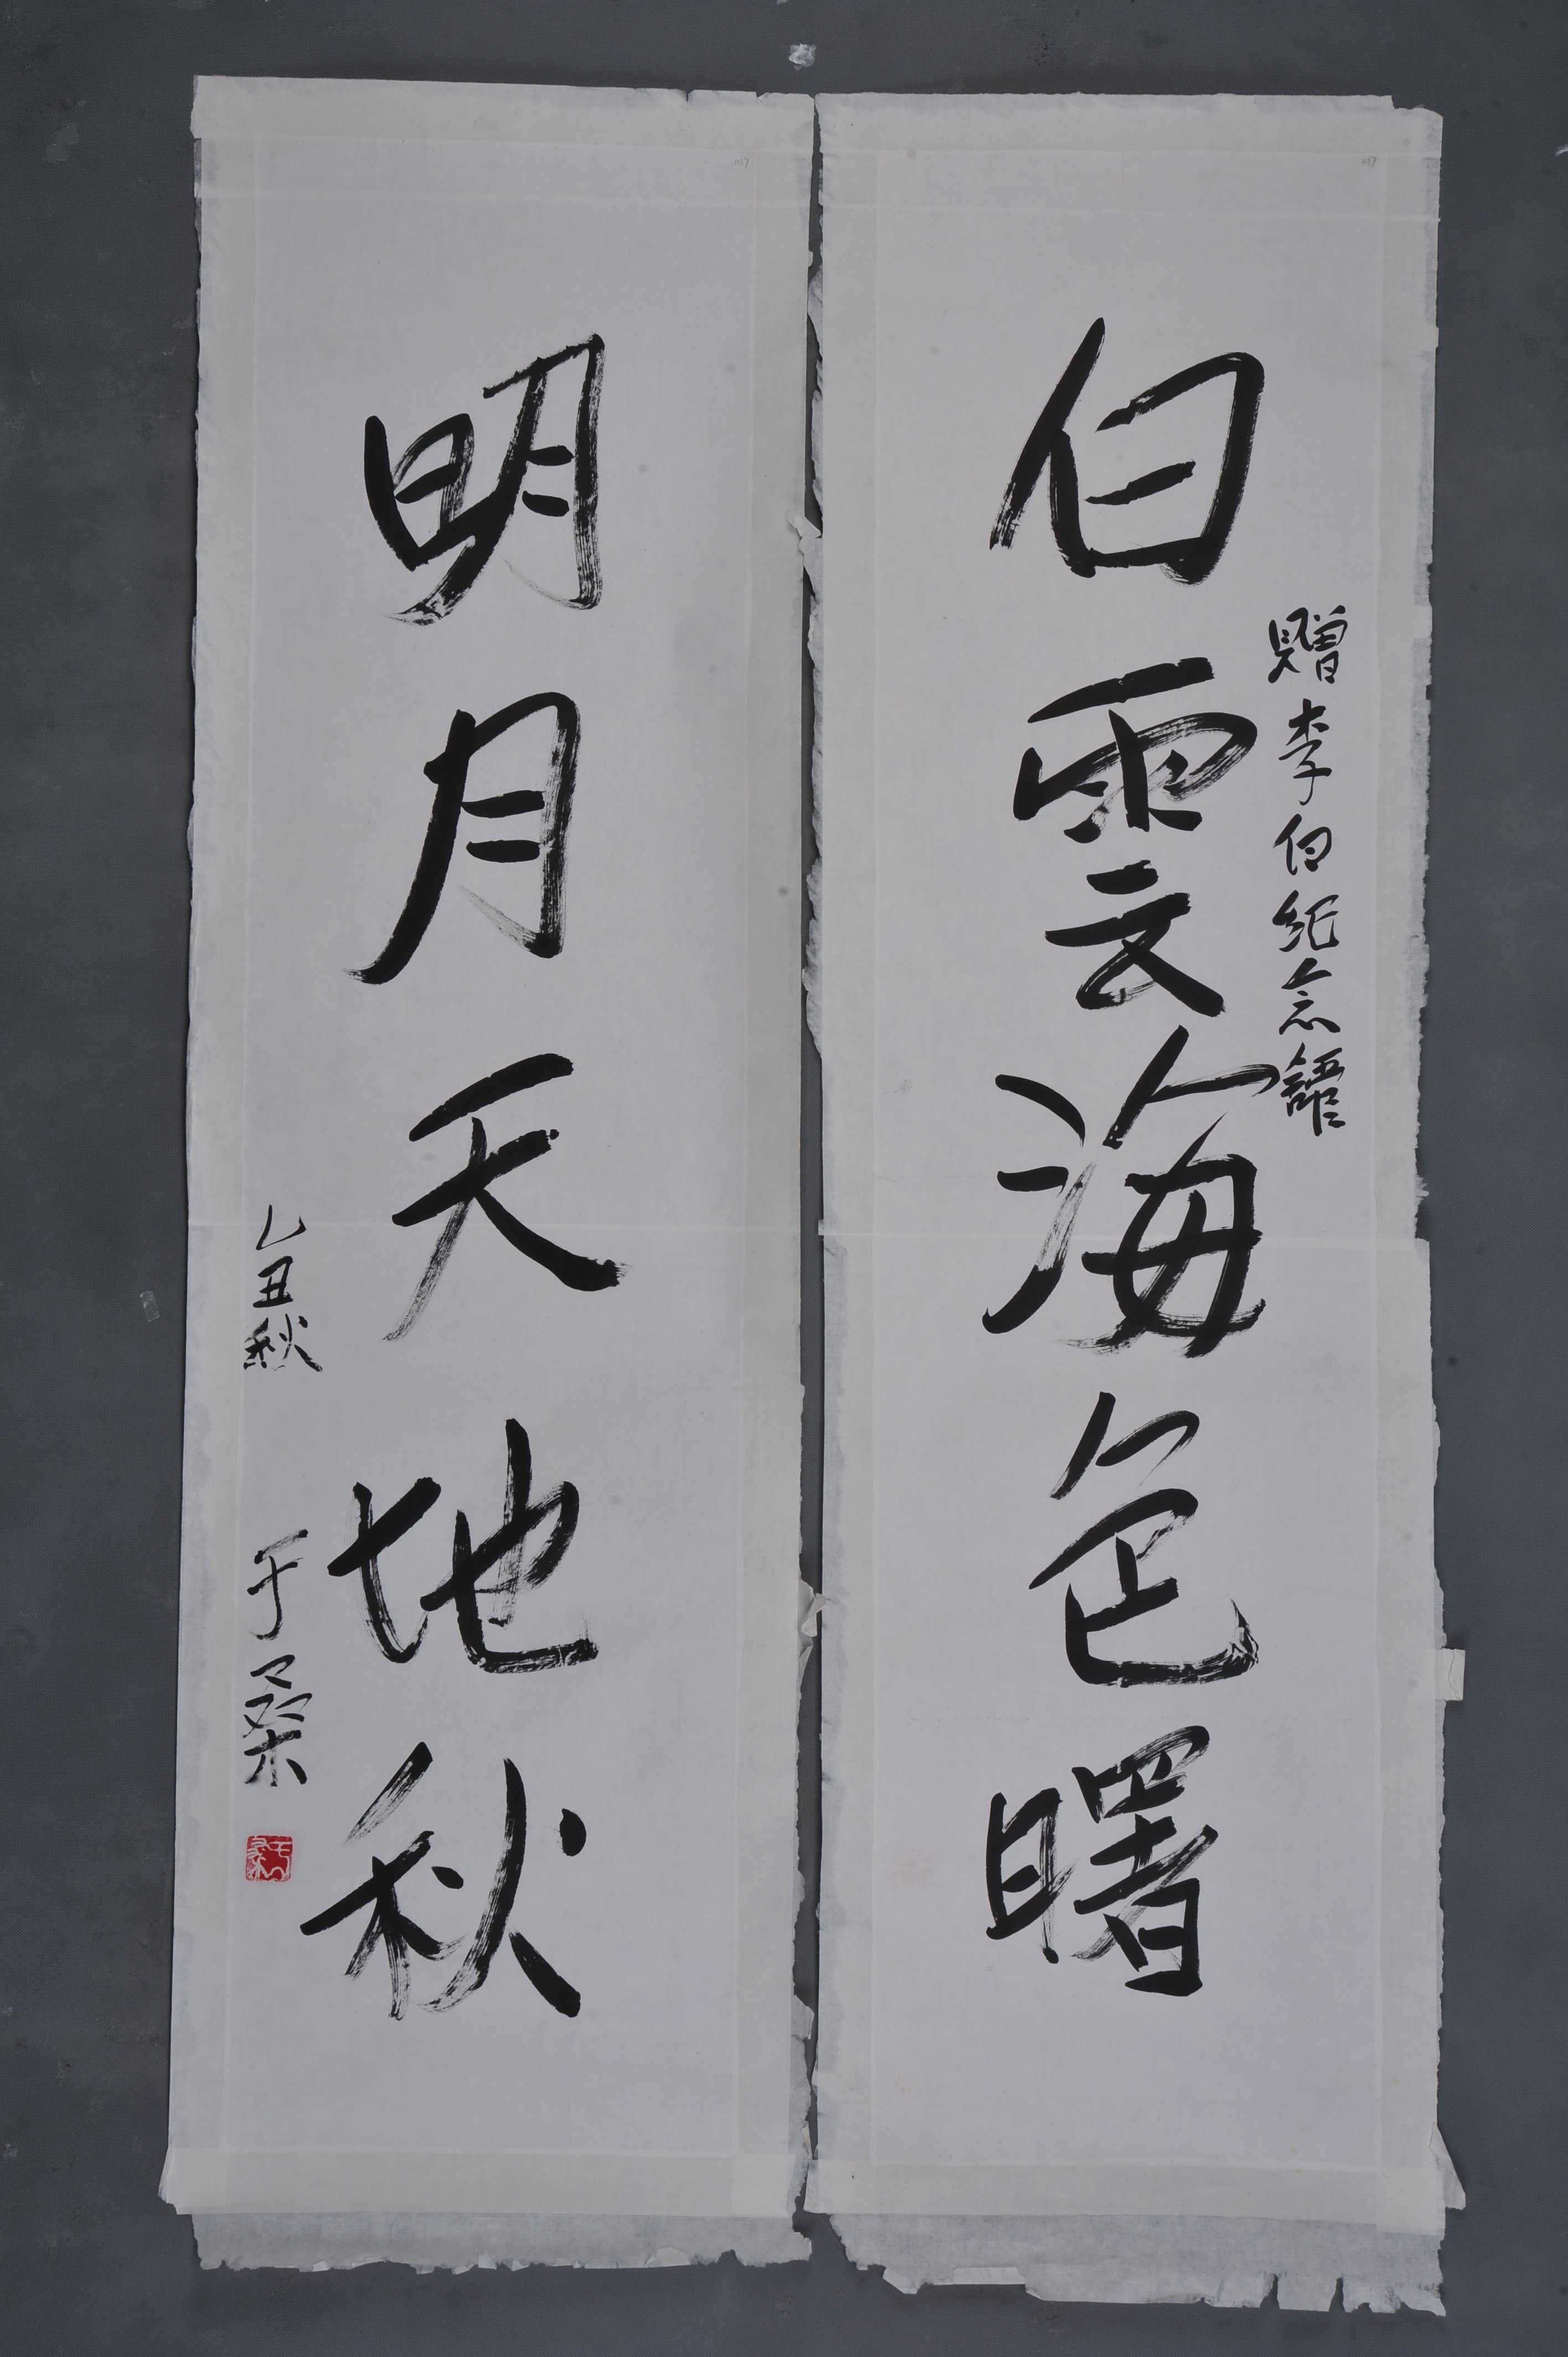 白雲海色曙
贈李白纪念舘
明月天地秋
乙丑秋
于桑